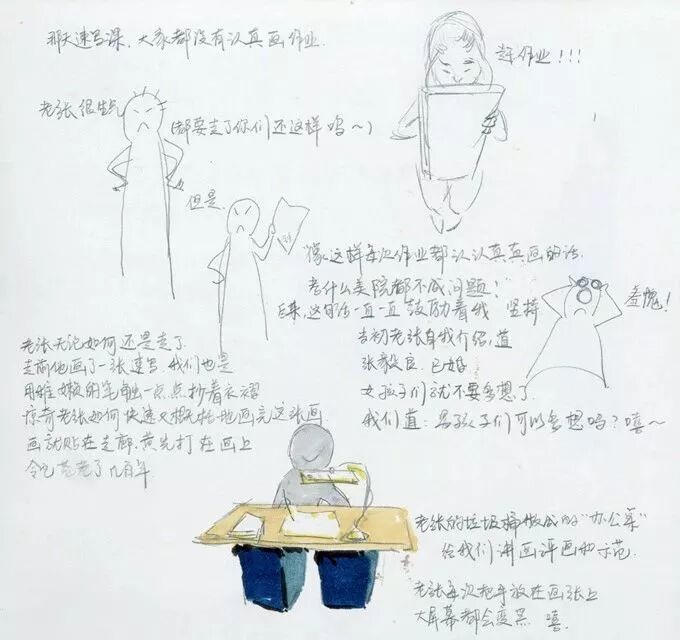 那天速写课，大家都没有认真画作业.
老张很生气
(都要走了你们还这样吗～)
交作业!!!
但是
“像这样每次作业都认认真真画的话.
考什么美院都不成问题!”
后来,这句话一直一直鼓励着我 坚持
羞愧!
当初老张自我介绍,道
张毅良.已婚
女孩子们就不要多想了.
我们道:男孩子们可以多想吗?嘻～
老张无论如何还是走了.
走前他画了一张速写.我们也是
用稚嫩的笔触一点点抄着衣褶
惊奇老张如何快速又概括地画完这张画
画就贴在走廊.黄光打在画上
令它苍老了几百年
老张的垃圾桶做成的“办公桌”
给我们讲画评画和示范.
老张每次把手放在画张上
大屏幕都会变黑 嘻.